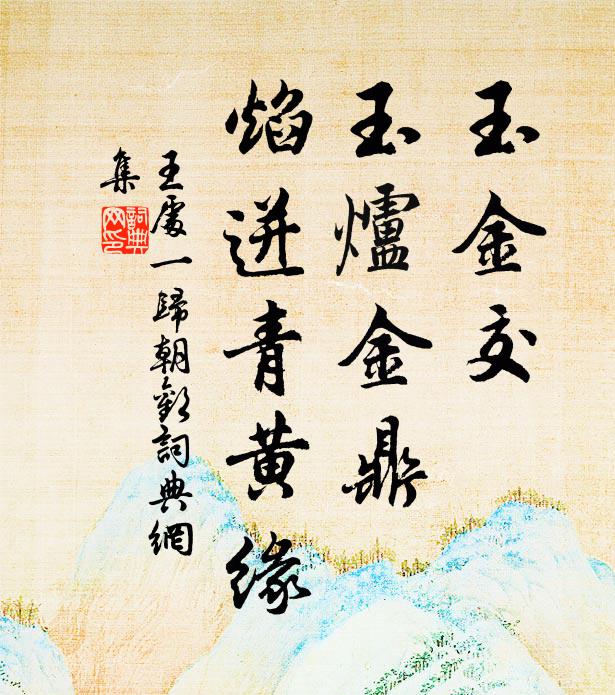 玉金交
玉爐金鼎
焰迸青黃緣
王處一歸朝歡詞典網
集
詞典
网印